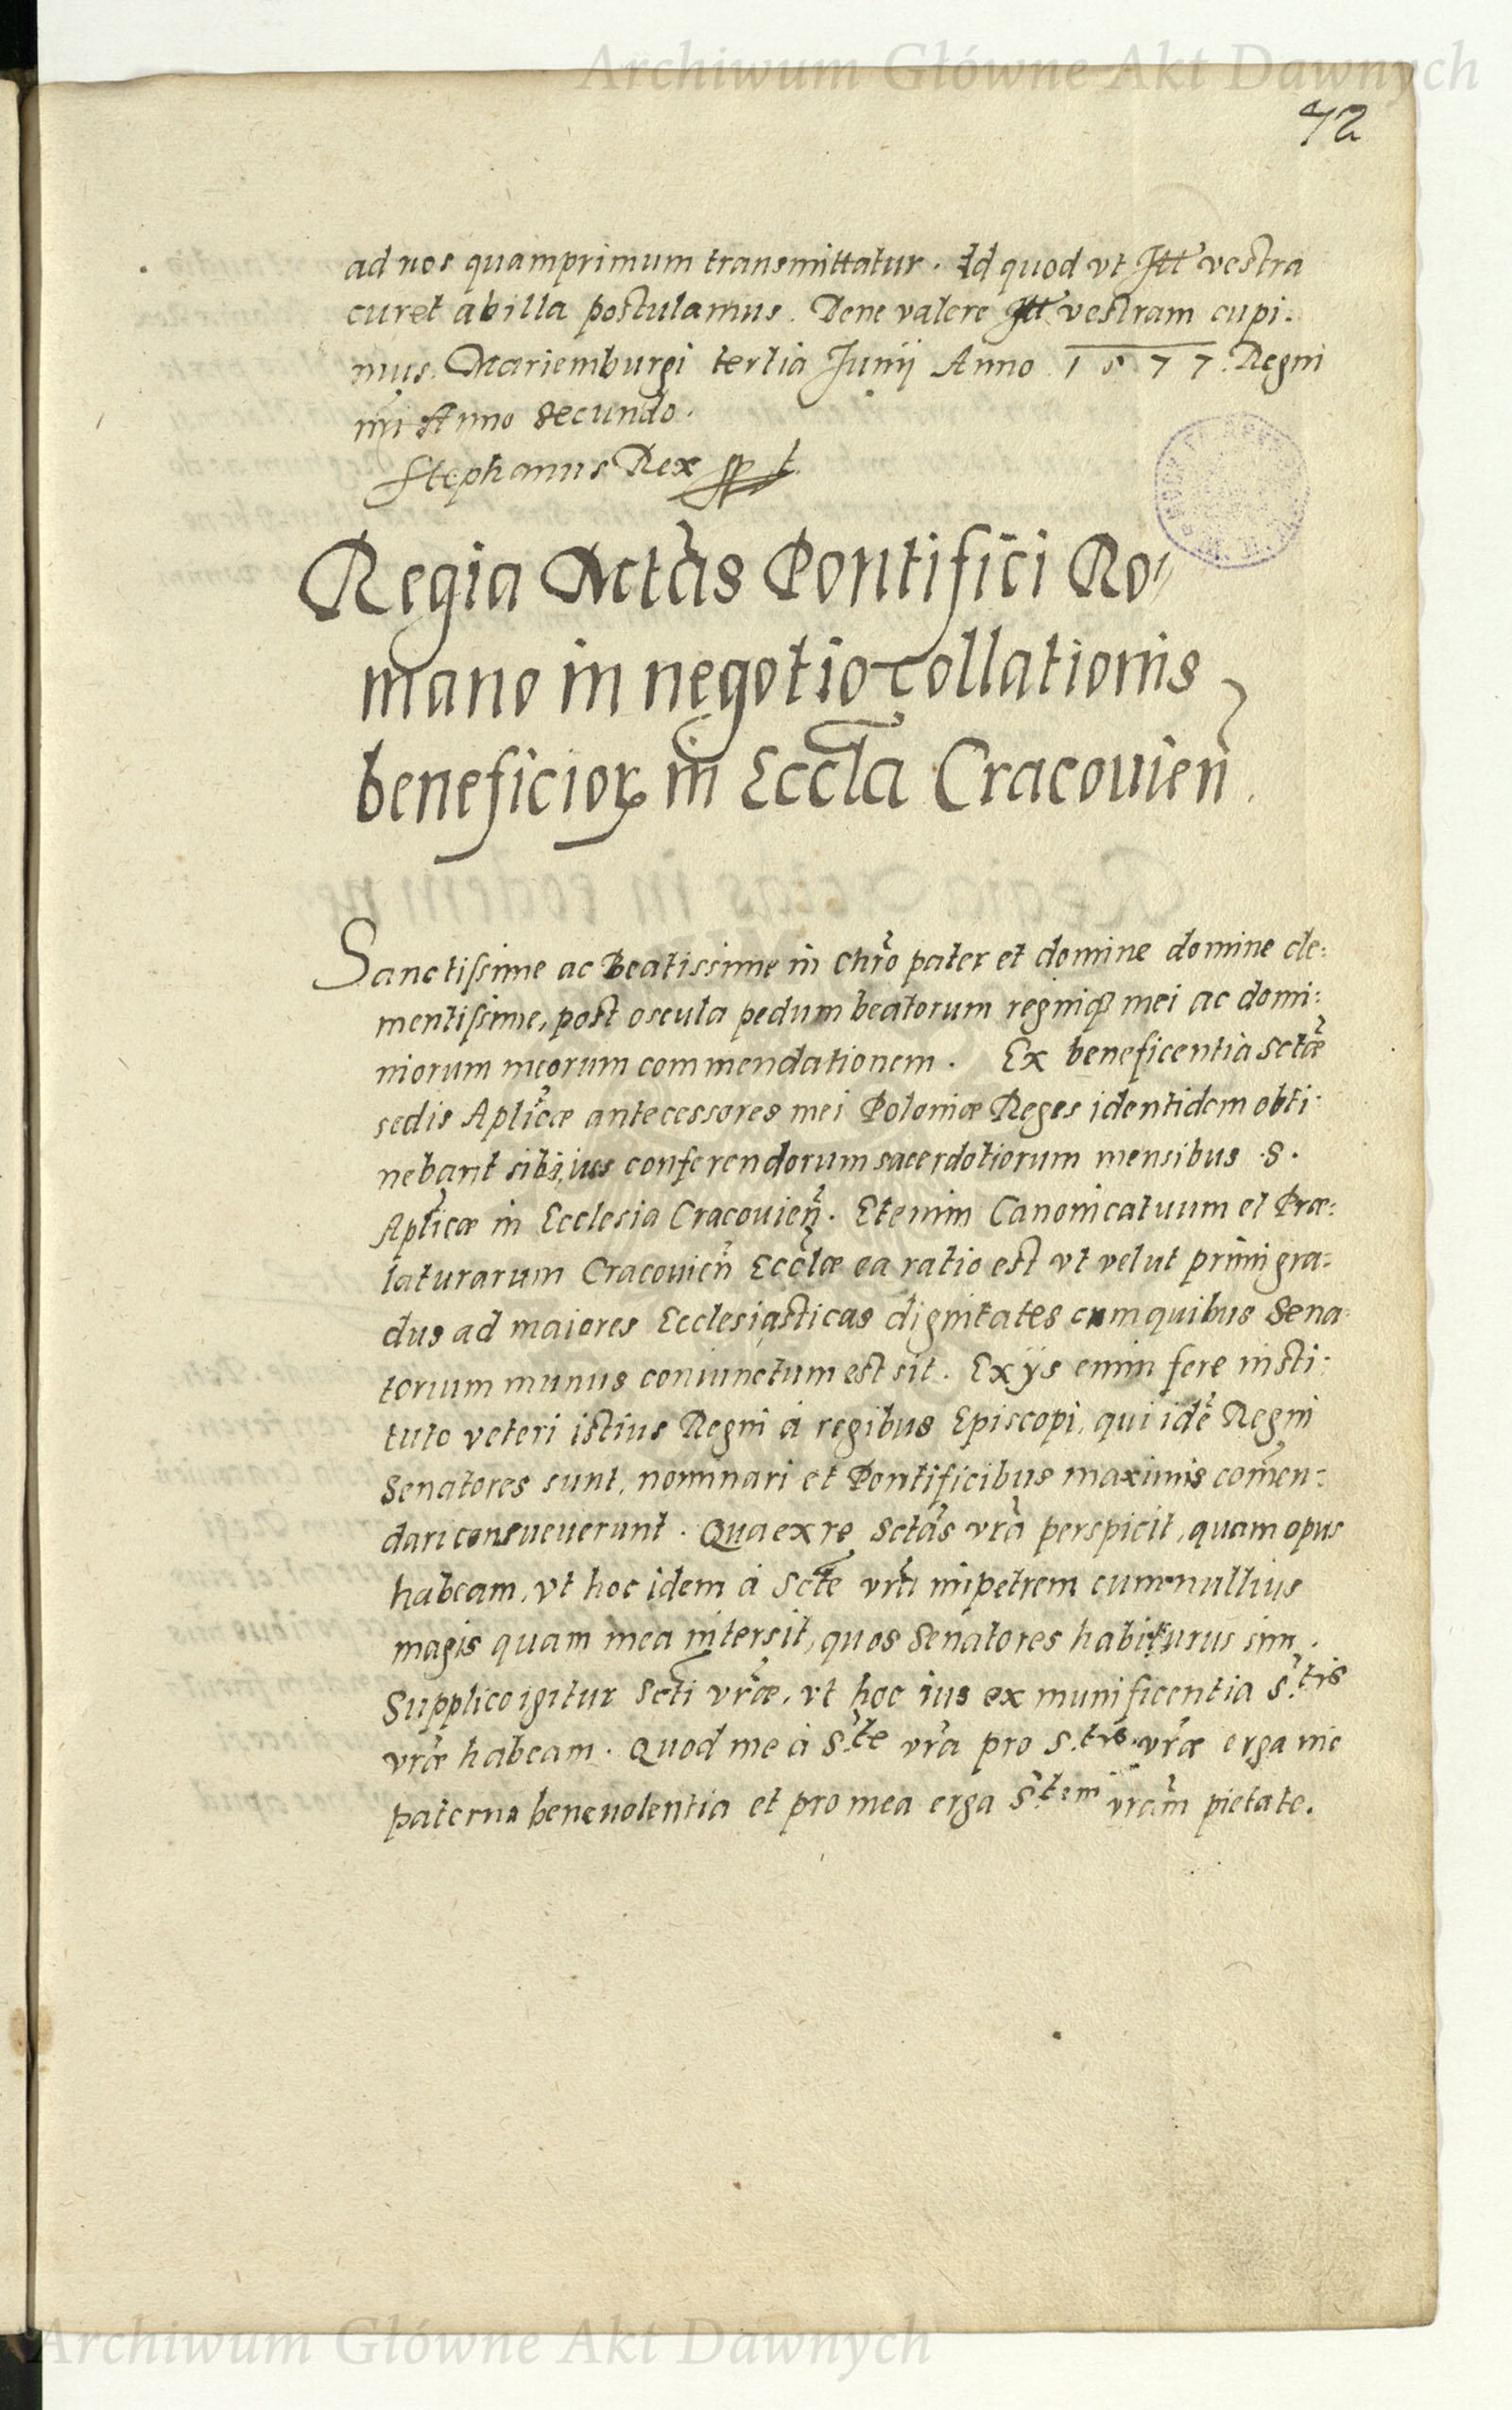 Archiwum Główne Akt Dawnych
72
ad nos quamprimum transmittatur. Id quod vt Ittͬ vestra
curet ab illa postulamus. Bene valere Ittͬ vestram cupi.
mus. Mariemburgi tertia Junij Anno 1577. Regni
nri Anno secundo.
Stephanus Rex
Regia Mctãs Pontifici Ro〃
mano in negotio collationis
beneficioꝝ in Eccła Cracouień.
Sanctissime ac Beatissime in Chrõ pater et domine domine cle:
mentissime, post oscula pedum beatorum regniqꝫ mei ac domi:
niorum meorum commendationem. Ex beneficentia sctæ̃
sedis Aplicæ̃ antecessores mei Poloniæ Reges identidem obti:
nebant sibi, ius conferendorum sacerdotiorum mensibus .S.
Aplicæ̃ in Ecclesia Cracouień. Etenim Canonicatuum et Præ:
laturarum Cracouień Ecclæ̃ ea ratio est vt velut primi gra:
dus ad maiores Ecclesiasticas dignitates cum quibus Sena:
torium munus coniunctum est sit. Ex ijs enim fere insti:
tuto veteri istius Regni à regibus Episcopi, qui idẽ Regni
Senatores sunt, nominari et Pontificibus maximis comẽn:
dari consueuerunt. Qua ex re Sctãs vrã perspicit, quam opus
habeam, vt hoc idem à Sctẽ vrã impetrem cum nullius
magis quam mea intersit, quos Senatores habiturus sim.
Supplico igitur Sctĩ vræ̃, vt hoc ius ex munificentia S.tis
vræ̃ habeam. Quod me à S.te vrã pro S.tis vræ̃ erga me
paterna beneuolentia et pro mea erga S.tem vrãm pietate.
Archiwum Główne Akt Dawnych